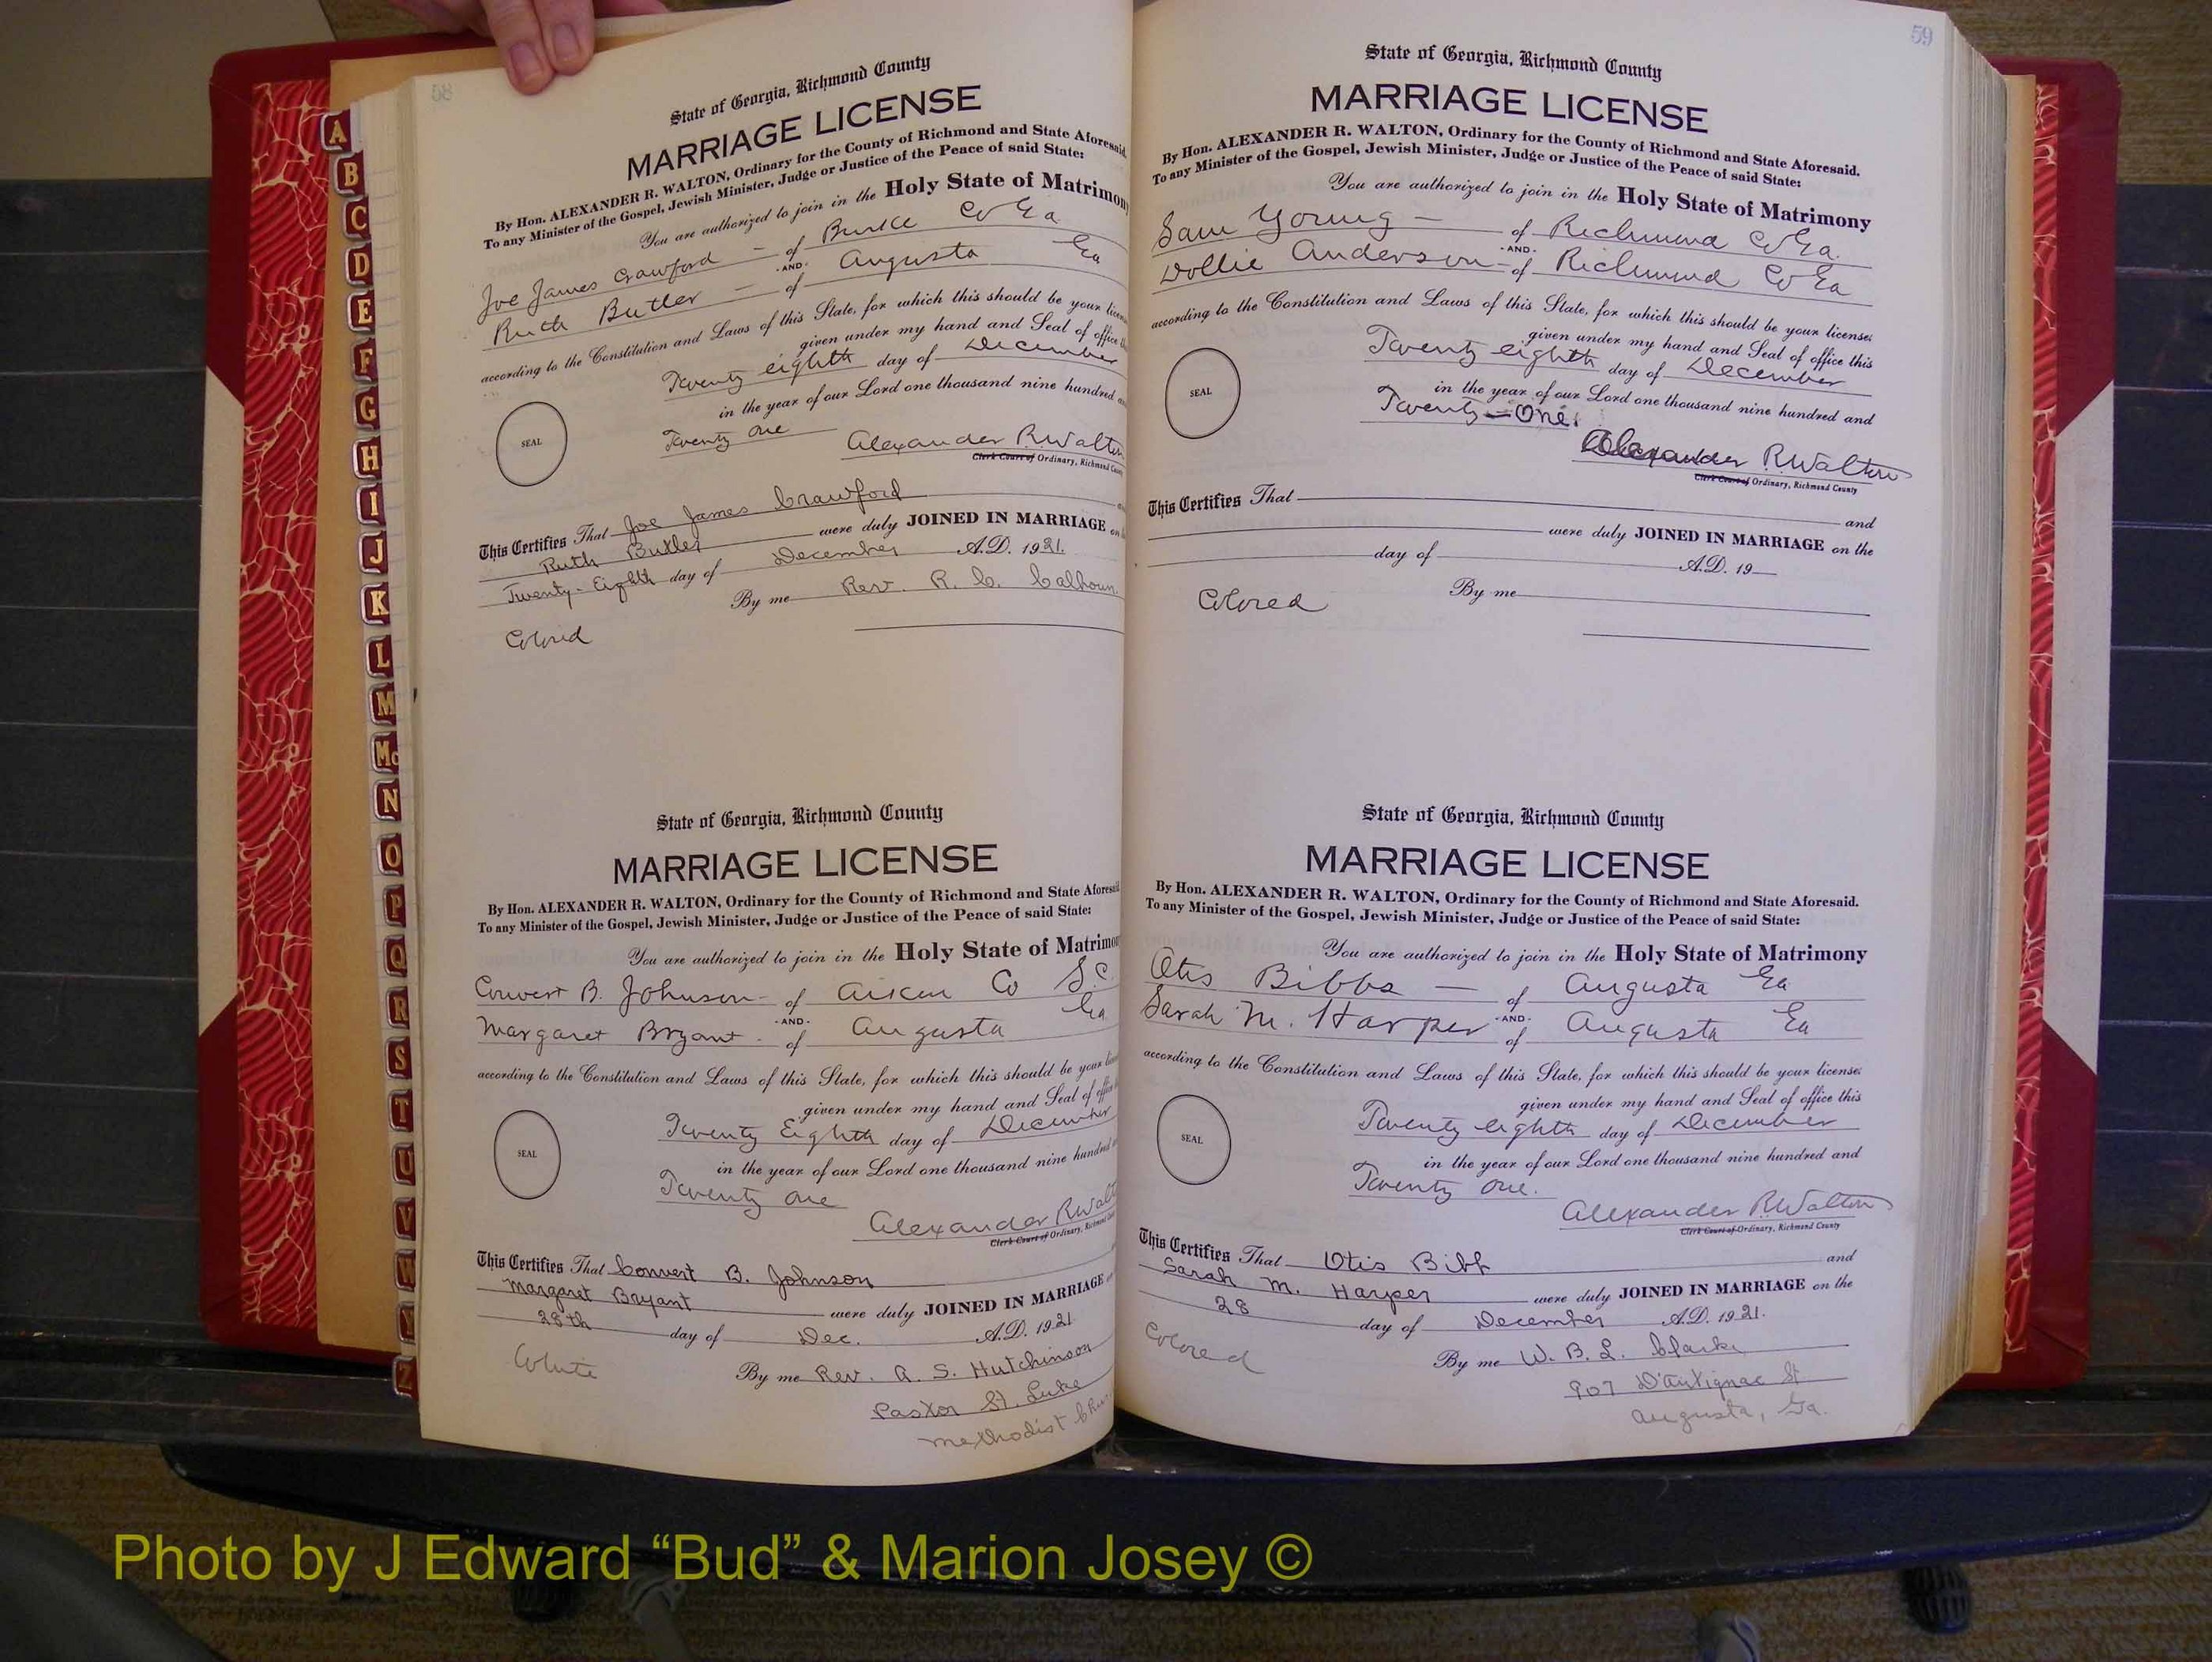 58
State of Georgia, Richmond County
MARRIAGE LICENSE
By Hon. ALEXANDER R. WALTON, Ordinary for the County of Richmond and State Aforesaid.
To any Minister of the Gospel, Jewish Minister, Judge or Justice of the Peace of said State:
You are authorized to join in the Holy State of Matrimony
Joe James Crawford — of Burke Co Ga
-AND-
Ruth Butler — of Augusta Ga
according to the Constitution and Laws of this State, for which this should be your license
given under my hand and Seal of office
Twenty eighth day of December
in the year of our Lord one thousand nine hundred
SEAL
Twenty one
Alexander R. Walton
Clerk Court of Ordinary, Richmond County
This Certifies That Joe James Crawford
Ruth Butler were duly JOINED IN MARRIAGE on
Twenty-Eighth day of December A.D. 1921.
By me Rev. R. C. Calhoun.
Colored
State of Georgia, Richmond County
MARRIAGE LICENSE
By Hon. ALEXANDER R. WALTON, Ordinary for the County of Richmond and State Aforesaid
To any Minister of the Gospel, Jewish Minister, Judge or Justice of the Peace of said State:
You are authorized to join in the Holy State of Matrimo
Convert B. Johnson - of Aiken Co S.C.
-AND-
Margaret Bryant - of Augusta Ga
according to the Constitution and Laws of this State, for which this should be your
given under my hand and Seal of office
Twenty Eighth day of December
in the year of our Lord one thousand nine hundred
SEAL
Twenty one
Alexander R Walt
Clerk Court of Ordinary, Richmond
This Certifies That Convert B. Johnson
Margaret Bryant were duly JOINED IN MARRIAGE
28th day of Dec. A.D. 1921
White
By me Rev. A. S. Hutchinson
Pastor St. Luke
Methodist
59
State of Georgia, Richmond County
MARRIAGE LICENSE
By Hon. ALEXANDER R. WALTON, Ordinary for the County of Richmond and State Aforesaid.
To any Minister of the Gospel, Jewish Minister, Judge or Justice of the Peace of said State:
You are authorized to join in the Holy State of Matrimony
Sam Young — of Richmond Co Ga.
-AND-
Dollie Anderson - of Richmond Co Ga
according to the Constitution and Laws of this State, for which this should be your license;
given under my hand and Seal of office this
Twenty eighth day of December
in the year of our Lord one thousand nine hundred and
SEAL
Twenty-One.
Alexander R. Walton
Clerk Court of Ordinary, Richmond County
This Certifies That and
were duly JOINED IN MARRIAGE on the
day of A.D. 19
By me
Colored
State of Georgia, Richmond County
MARRIAGE LICENSE
By Hon. ALEXANDER R. WALTON, Ordinary for the County of Richmond and State Aforesaid.
To any Minister of the Gospel, Jewish Minister, Judge or Justice of the Peace of said State:
You are authorized to join in the Holy State of Matrimony
Otis Bibbs — of Augusta Ga
-AND-
Sarah M. Harper of Augusta Ga
according to the Constitution and Laws of this State, for which this should be your license;
given under my hand and Seal of office this
Twenty eighth day of December
in the year of our Lord one thousand nine hundred and
SEAL
Twenty one.
Alexander R. Walton
Clerk Court of Ordinary, Richmond County
This Certifies That Otis Bibb and
Sarah M. Harper were duly JOINED IN MARRIAGE on the
28 day of December A.D. 1921.
Colored
By me W. B. L. Clarke
907 D'Antignac St
Augusta, Ga.
A
B
C
D
E
F
G
H
I
J
K
L
M
Mc
N
O
P
Q
R
S
T
U
V
W
Y
Z
Photo by J Edward “Bud” & Marion Josey ©